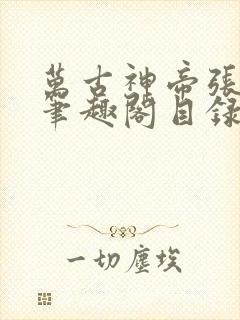 萬古神帝張
筆趣閣目錄
一切塵埃